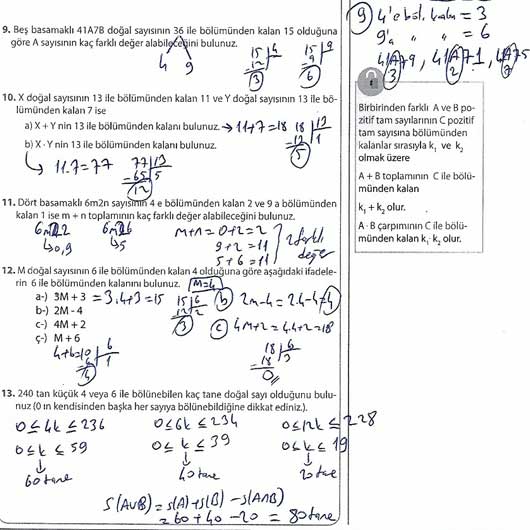 9. Beş basamaklı 41A7B doğal sayısının 36 ile bölümünden kalan 15 olduğuna
göre A sayısının kaç farklı değer alabileceğini bulunuz.
4 9
15 4
12
3
15 9
9
6
9 4'e böl. kalan = 3
9'a " " = 6
41A79, 41A71, 41A75
3 2
10. X doğal sayısının 13 ile bölümünden kalan 11 ve Y doğal sayısının 13 ile bö-
lümünden kalan 7 ise
a) X + Y nin 13 ile bölümünden kalanı bulunuz. → 11+7=18 18 13
13 1
5
b) X · Y nin 13 ile bölümünden kalanı bulunuz.
11.7=77 77 13
65 5
12
Birbirinden farklı A ve B po-
zitif tam sayılarının C pozitif
tam sayısına bölümünden
kalanlar sırasıyla k₁ ve k₂
olmak üzere
A + B toplamının C ile bölü-
münden kalan
k₁ + k₂ olur.
A · B çarpımının C ile bölü-
münden kalan k₁· k₂ olur.
11. Dört basamaklı 6m2n sayısının 4 e bölümünden kalan 2 ve 9 a bölümünden
kalan 1 ise m + n toplamının kaç farklı değer alabileceğini bulunuz.
6m22 6m26
0,9 5
m+n = 0+2 = 2
9+2 = 11
5+6 = 11
2 farklı
değer
12. M doğal sayısının 6 ile bölümünden kalan 4 olduğuna göre aşağıdaki ifadele-
rin 6 ile bölümünden kalanını bulunuz. M=4
a-) 3M + 3 = 3.4+3 = 15 15 6
12 2
3
b-) 2M - 4
b 2m-4 = 2.4-4 = 4
c-) 4M + 2
c 4M+2 = 4.4+2 = 18
18 6
18 3
0
ç-) M + 6
4+6=10 6
6 1
4
13. 240 tan küçük 4 veya 6 ile bölünebilen kaç tane doğal sayı olduğunu bulu-
nuz (0 ın kendisinden başka her sayıya bölünebildiğine dikkat ediniz.).
0 ≤ 4k ≤ 236 0 ≤ 6k ≤ 234 0 ≤ 12k ≤ 228
0 ≤ k ≤ 59 0 ≤ k ≤ 39 0 ≤ k ≤ 19
60 tane 40 tane 20 tane
s(AUB) = s(A)+s(B) - s(A∩B)
= 60 + 40 - 20 = 80 tane